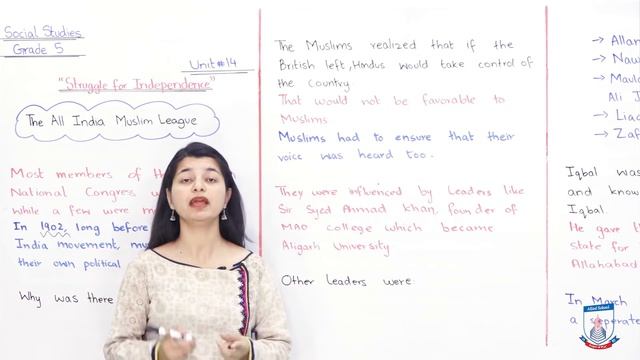 Social Studies
Grade 5
Unit#14
"Struggle for Independence"
The All India Muslim League
Most members of
National Congress
while a few were
In 1902, long before
India movement,
their own political
Why was there
The Muslims realized that if the
British left, Hindus would take control of
the country
That would not be favorable to
Muslims
Muslims had to ensure that their
voice was heard too.
They were influenced by leaders like
Sir Syed Ahmad Khan, founder of
MAO college which became
Aligarh University
Other Leaders were
→
→
→
Ali
→
→
Iqbal was
and know
Iqbal.
He gave
state for
Allahabad
In March
a seperate
Allied School